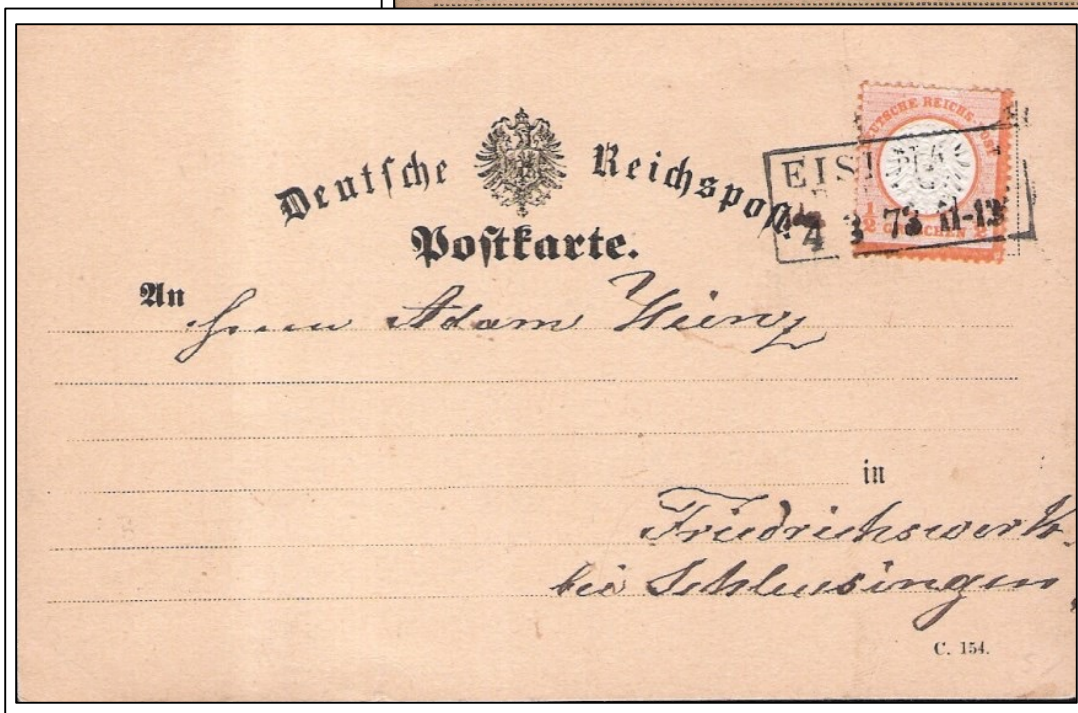 Deutsche Reichspost
Postkarte.
DEUTSCHE REICHS-POST
½ GROSCHEN ½
4 3 73 11-12
An
Herrn Adam
in
Friedrichswerk.
bei Schleusingen
C. 154.